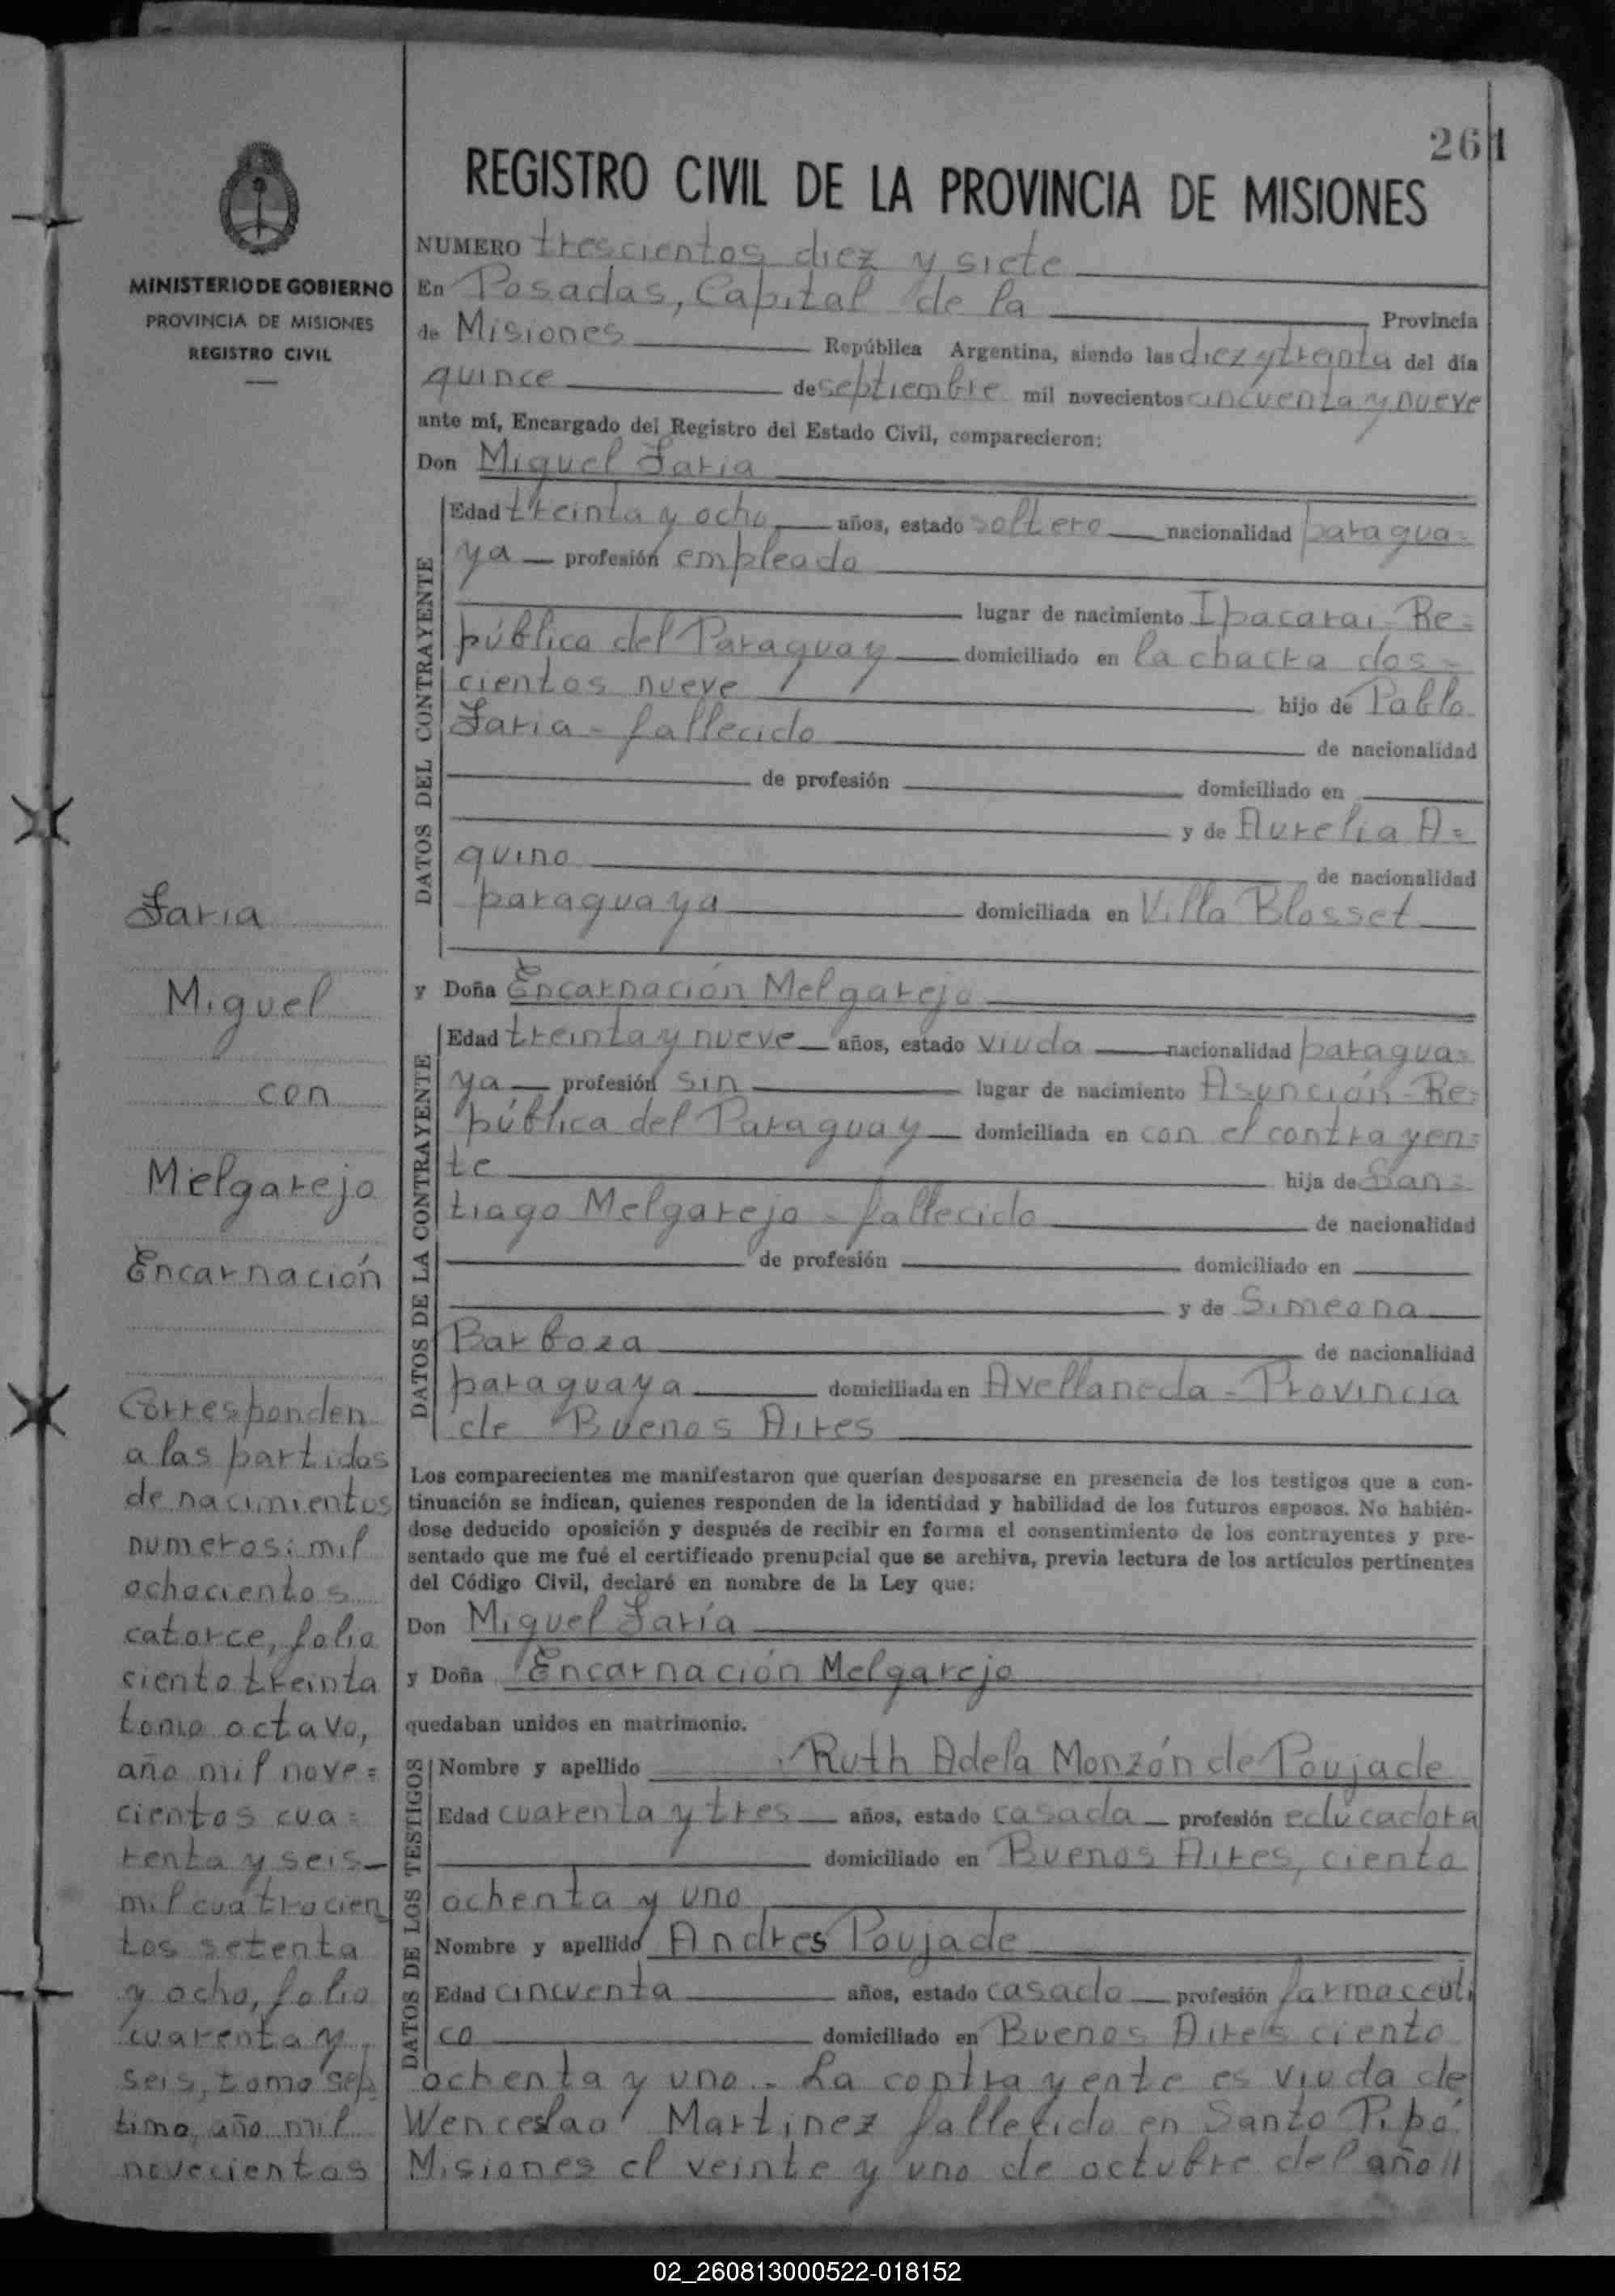 261
REGISTRO CIVIL DE LA PROVINCIA DE MISIONES
MINISTERIO DE GOBIERNO
PROVINCIA DE MISIONES
REGISTRO CIVIL
NUMERO trescientos diez y siete
En Posadas, Capital de la Provincia
de Misiones República Argentina, siendo las diez y treinta del día
quince de septiembre mil novecientos cincuenta y nueve
ante mí, Encargado del Registro del Estado Civil, comparecieron:
Don Miguel Faria
DATOS DEL CONTRAYENTE
Edad treinta y ocho años, estado soltero nacionalidad paragua=
ya profesión empleado
lugar de nacimiento Ipacarai Re=
pública del Paraguay domiciliado en la chacra dos=
cientos nueve hijo de Pablo
Faria - fallecido de nacionalidad
de profesión domiciliado en
y de Aurelia A=
quino de nacionalidad
paraguaya domiciliada en Villa Blosset
y Doña Encarnación Melgarejo
DATOS DE LA CONTRAYENTE
Edad treinta y nueve años, estado viuda nacionalidad paragua=
ya profesión sin lugar de nacimiento Asunción - Re=
pública del Paraguay domiciliada en con el contrayen=
te hija de San=
tiago Melgarejo - fallecido de nacionalidad
de profesión domiciliado en
y de Simeona
Barboza de nacionalidad
paraguaya domiciliada en Avellaneda - Provincia
de Buenos Aires
Los comparecientes me manifestaron que querían desposarse en presencia de los testigos que a con-
tinuación se indican, quienes responden de la identidad y habilidad de los futuros esposos. No habién-
dose deducido oposición y después de recibir en forma el consentimiento de los contrayentes y pre-
sentado que me fué el certificado prenupcial que se archiva, previa lectura de los artículos pertinentes
del Código Civil, declaré en nombre de la Ley que:
Don Miguel Faría
y Doña Encarnación Melgarejo
quedaban unidos en matrimonio.
DATOS DE LOS TESTIGOS
Nombre y apellido Ruth Adela Monzón de Poujade
Edad cuarenta y tres años, estado casada profesión educadora
domiciliado en Buenos Aires, ciento
ochenta y uno
Nombre y apellido Andres Poujade
Edad cincuenta años, estado casado profesión farmaceuti
co domiciliado en Buenos Aires ciento
ochenta y uno - La contrayente es viuda de
Wenceslao Martinez fallecido en Santo Pipó
Misiones el veinte y uno de octubre del año //
Faria
Miguel
con
Melgarejo
Encarnación
Corresponden
a las partidas
de nacimientos
numeros: mil
ochocientos
catorce, folio
ciento treinta
tomo octavo,
año mil nove=
cientos cua=
renta y seis -
mil cuatrocien
tos setenta
y ocho, folio
cuarenta y
seis, tomo sep
timo, año mil
novecientos
02_260813000522-018152